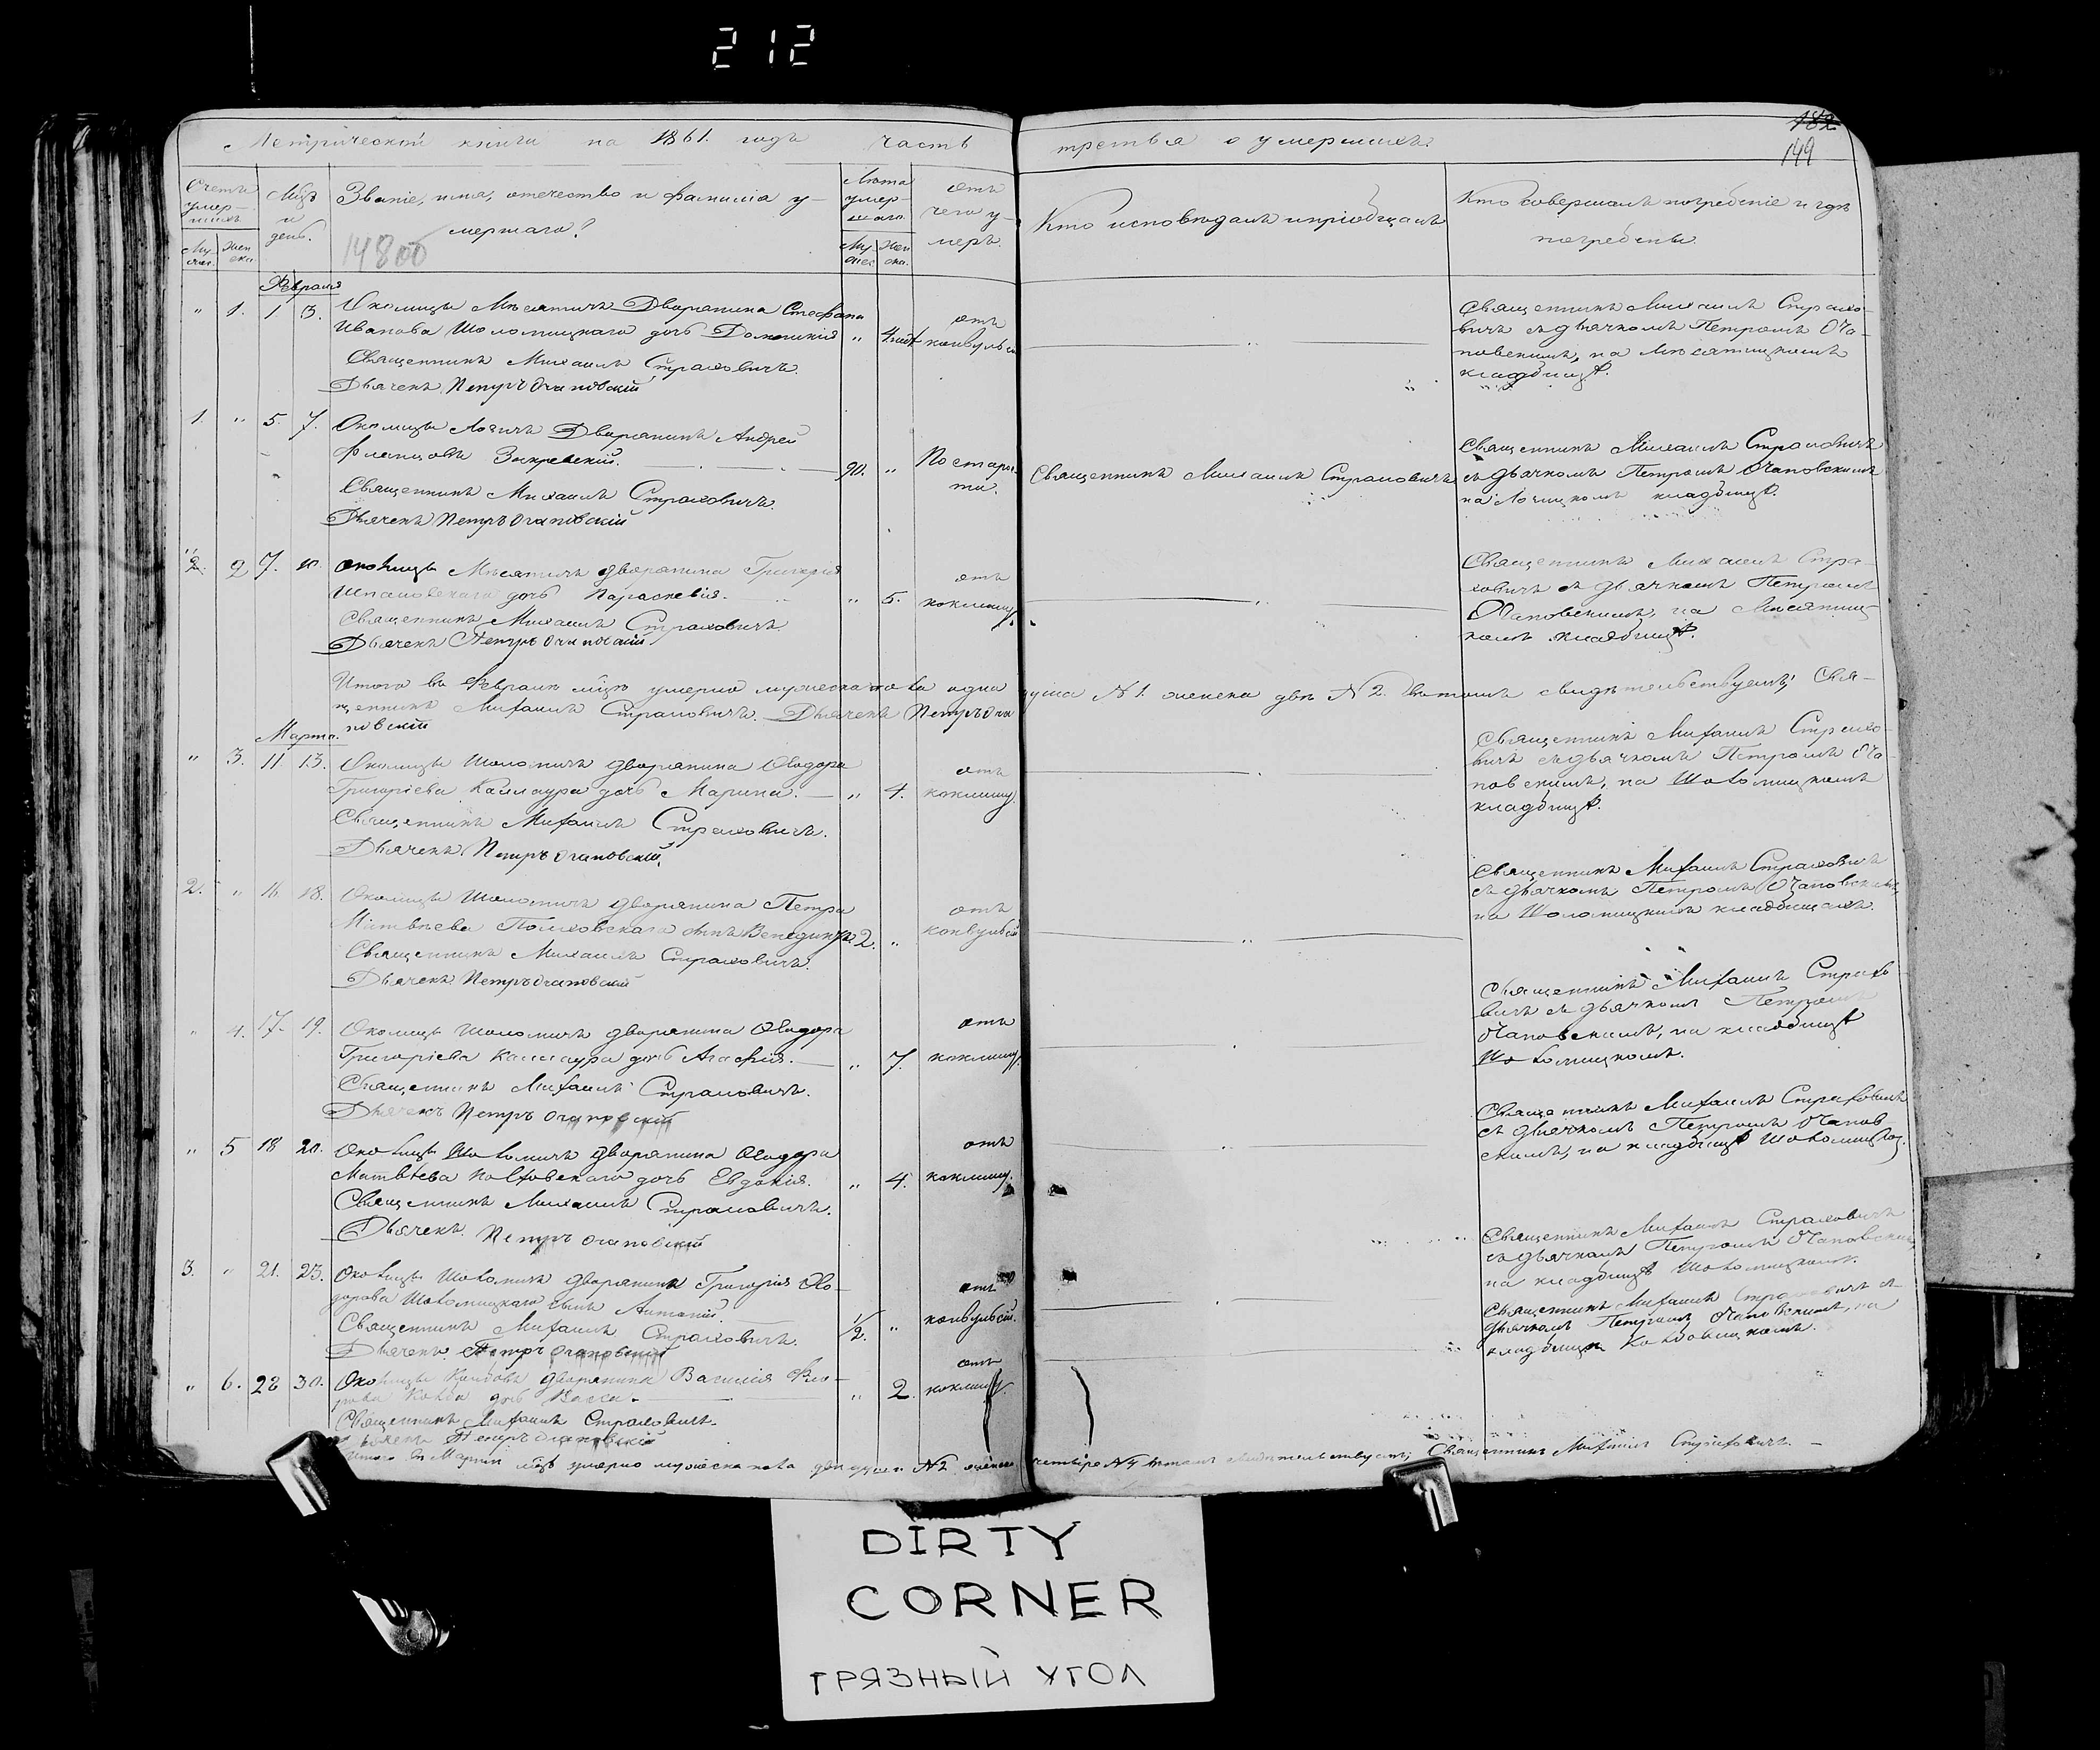 212
182
149
Метрической книги на 1861. годъ часть третья о умершихъ.
Счетъ умер-
шихъ
Муж.
Жен
Мцъ
и
день.
Званіе, имя, отечество и фамилія у-
мершаго?
14800
Лѣта
умер-
шаго.
отъ
чего у-
меръ.
Кто исповѣдалъ и пріобщалъ
Кто совершалъ погребеніе и гдѣ
погребены.
Февраля
" 1. 1 3. Околицы Мѣсятичъ Дворянина Стефана
Иванова Шоломицкаго дочь " 4
отъ
конвульс
Священникъ Михаилъ Страховичъ
Дьячекъ Петръ Очаповскій
Священникъ Михаилъ Страхо-
вичъ съ дьячкомъ Петромъ Оча-
повскимъ, на Мѣсятицкомъ
кладбищѣ.
1. " 5. 7. Околицы Дворянинъ Андрей
Закревскій. 90. " По старо-
сти.
Священникъ Михаилъ Страховичъ.
Дьячекъ Петръ Очаповскій
Священникъ Михаилъ Страховичъ
Священникъ Михаилъ Страховичъ
съ дьячкомъ Петромъ Очаповскимъ
на кладбищѣ.
2 7. 10. Околицы Мѣсятичъ дворянина Григорія
дочь Параскевія. " 5.
отъ
коклюшу.
Священникъ Михаилъ Страховичъ
Дьячекъ Петръ Очаповскій
Священникъ Михаилъ Стра-
ховичъ съ дьячкомъ Петромъ
Очаповскимъ, на Мѣсятиц-
комъ кладбищѣ.
Итого въ Февралѣ мцѣ умерло мужеска пола одна душа №1. женска двѣ №2. въ томъ свидѣтельствуемъ; Свя-
щенникъ Михаилъ Страховичъ. Дьячекъ Петръ Оча
повскій
Марта.
" 3. 11. 13. Околицы Шоломичъ дворянина Ѳеодора
Григоріева Каллаура дочь Марина. " 4.
отъ
коклюшу.
Священникъ Михаилъ Страховичъ.
Дьячекъ Петръ Очаповскій.
Священникъ Михаилъ Страхо-
вичъ съ дьячкомъ Петромъ Оча-
повскимъ, на Шоломицкомъ
кладбищѣ.
2. " 16. 18. Околицы Шоломичъ дворянина Петра
Матвѣева сынъ 2. "
отъ
конвульсій
Священникъ Михаилъ Страховичъ.
Дьячекъ Петръ Очаповскій
Священникъ Михаилъ Страховичъ
съ дьячкомъ Петромъ Очаповскимъ,
на Шоломицкомъ кладбищахъ.
" 4. 17. 19. Околицы Шоломичъ дворянина Ѳеодора
Григоріева Каллаура дочь Агафія. " 7.
отъ
коклюшу.
Священникъ Михаилъ Страховичъ.
Дьячекъ Петръ Очаповскій
Священникъ Михаилъ Страхо
вичъ съ дьячкомъ Петромъ
Очаповскимъ, на кладбищѣ
Шоломицкомъ.
" 5 18 20. Околицы Шоломичъ дворянина Ѳеодора
Матвѣева дочь Евдокія. " 4.
отъ
коклюшу.
Священникъ Михаилъ Страховичъ.
Дьячекъ Петръ Очаповскій
Священникъ Михаилъ Страховичъ
съ дьячкомъ Петромъ Очапов
скимъ, на кладбищѣ Шоломицком.
3. " 21. 23. Околицы Шоломичъ дворянина Григорія Ѳео-
дорова Шоломицкаго сынъ Антоній. 1/2. "
отъ
конвульсій.
Священникъ Михаилъ Страховичъ.
Дьячекъ Петръ Очаповскій
Священникъ Михаилъ Страховичъ
съ дьячкомъ Петромъ Очаповским
на кладбищѣ Шоломицкомъ.
" 6. 28 30. Околицы дворянина Василія
дочь Васса. " 2.
отъ
коклюшу.
Священникъ Михаилъ Страховичъ.
Дьячекъ Петръ Очаповскій
Священникъ Михаилъ Страховичъ съ
дьячкомъ Петромъ Очаповскимъ, на
кладбищѣ
Итого въ Мартѣ мцѣ умерло мужеска пола двѣ души №2 женска четыре №4 въ томъ свидѣтельствуемъ; Священникъ Михаилъ Страховичъ.
DIRTY
CORNER
ГРЯЗНЫЙ УГОЛ